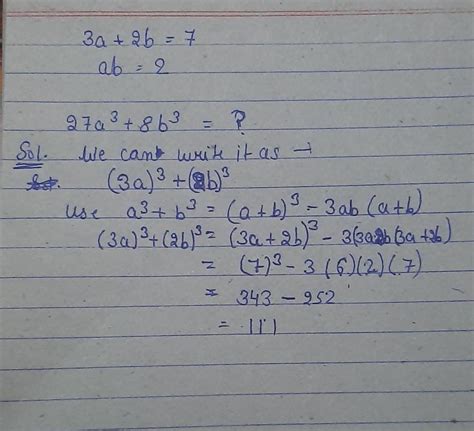 3a + 2b = 7
ab = 2
27a³ + 8b³ = ?
Sol. We can write it as →
(3a)³ + (2b)³
Use a³ + b³ = (a+b)³ - 3ab (a+b)
(3a)³ + (2b)³ = (3a + 2b)³ - 3(3a2b(3a+2b)
= (7)³ - 3 (6)(2)(7)
= 343 - 252
= 111